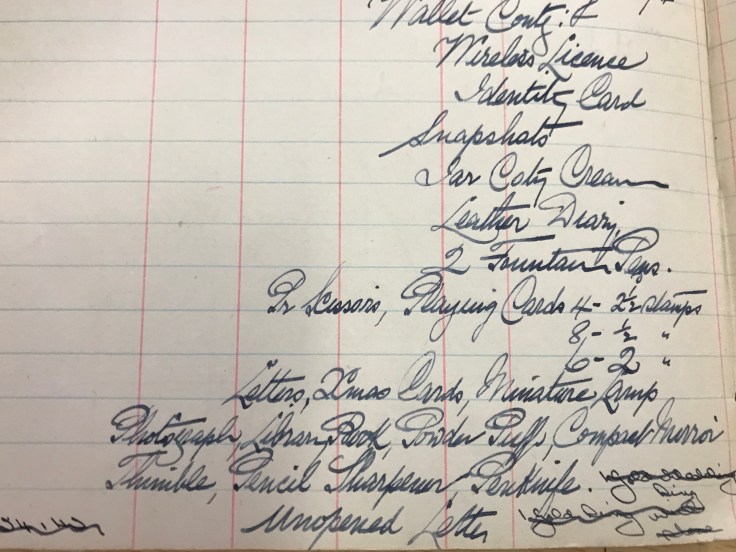 Wallet Contg: &
Wireless Licence
Identity Card
Snapshots
Jar Coty Cream
Leather Diary,
2 Fountain Pens.
Pr Scissors, Playing Cards 4 - 2½ stamps
8 - ½ "
6 - 2 "
Letters, Xmas Cards, Minature Lamp
Photograph, Library Book, Powder Puffs, Compact Mirror
Thimble, Pencil Sharpener, Penknife.
Unopened Letter